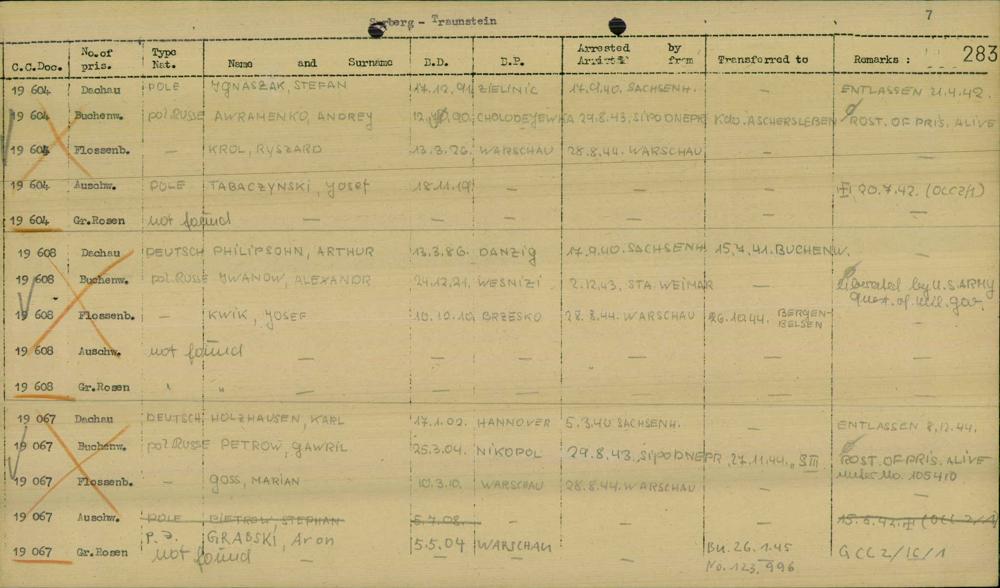 Surberg - Traunstein 7
283
C.C.Doc. No.of pris. Type Nat. Name and Surname B.D. B.P. Arrested by Arrived from Transferred to Remarks :
19 604 Dachau POLE YGNASZAK, STEFAN 17.12.91 ZIELINIC 17.9.40. SACHSENH. — ENTLASSEN 21.4.42.
19 604 Buchenw. pol.RUSSE AWRAMENKO, ANDREY 90. CHOLODEJEWKA 29.8.43. SIPO DNEPR Kdo. ASCHERSLEBEN ROST. OF PRIS. ALIVE
19 604 Flossenb. — KROL, RYSZARD 13.3.26. WARSCHAU 28.8.44. WARSCHAU — —
19 604 Auschw. POLE TABACZYNSKI, Josef 18.11.19 — — — 20.7.42. (OCC2/1)
19 604 Gr.Rosen not found — — — — — —
19 608 Dachau DEUTSCH PHILIPSOHN, ARTHUR 13.3.86. DANZIG 17.9.40. SACHSENH. 15.7.41. BUCHENW. —
19 608 Buchenw. pol.RUSSE YWANOW, ALEXANDR 24.12.21. WESNIZI 2.12.43, STA. WEIMAR — liberated by U.S ARMY
Quest. of mil. gov.
19 608 Flossenb. — KWIK, JOSEF 10.10.10. BRZESKO 28.8.44. WARSCHAU 26.10.44. BERGEN-BELSEN —
19 608 Auschw. not found — — — — — —
19 608 Gr.Rosen " " — — — — — —
19 067 Dachau DEUTSCH HOLZHAUSEN, KARL 17.1.02. HANNOVER 5.3.40 SACHSENH. — ENTLASSEN 8.12.44.
19 067 Buchenw. pol.RUSSE PETROW, GAWRIL 25.3.04. NIKOPOL 29.8.43. SIPO DNEPR 27.11.44. „SIII ROST. OF PRIS. ALIVE
under No. 105410
19 067 Flossenb. — GOSS, MARIAN 10.3.10. WARSCHAU 28.8.44. WARSCHAU — —
19 067 Auschw. POLE PIETROW, STEPHAN 5.7.08. — — — 15.6.42. (OCC 2/1)
P.J. GRABSKI, Aron
19 067 Gr.Rosen not found 5.5.04 WARSCHAU — Bu. 26.1.45 GCC2/IC/1
No. 123.996